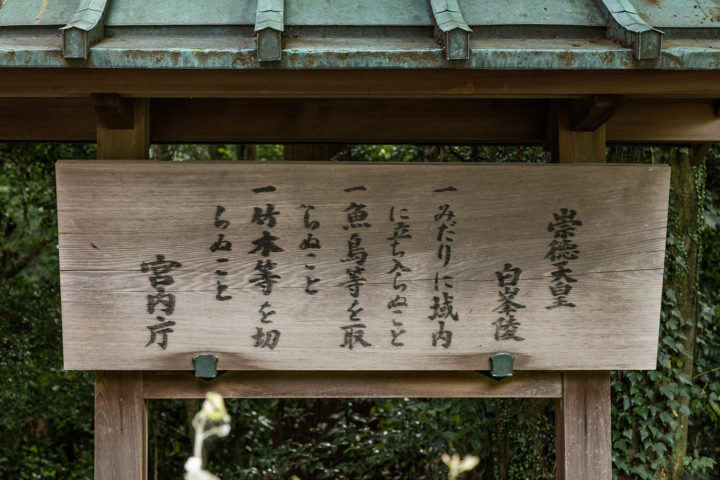 崇徳天皇
白峯陵
一みだりに域内
に立ち入らぬこと
一魚鳥等を取
らぬこと
一竹木等を切
らぬこと
宮内庁